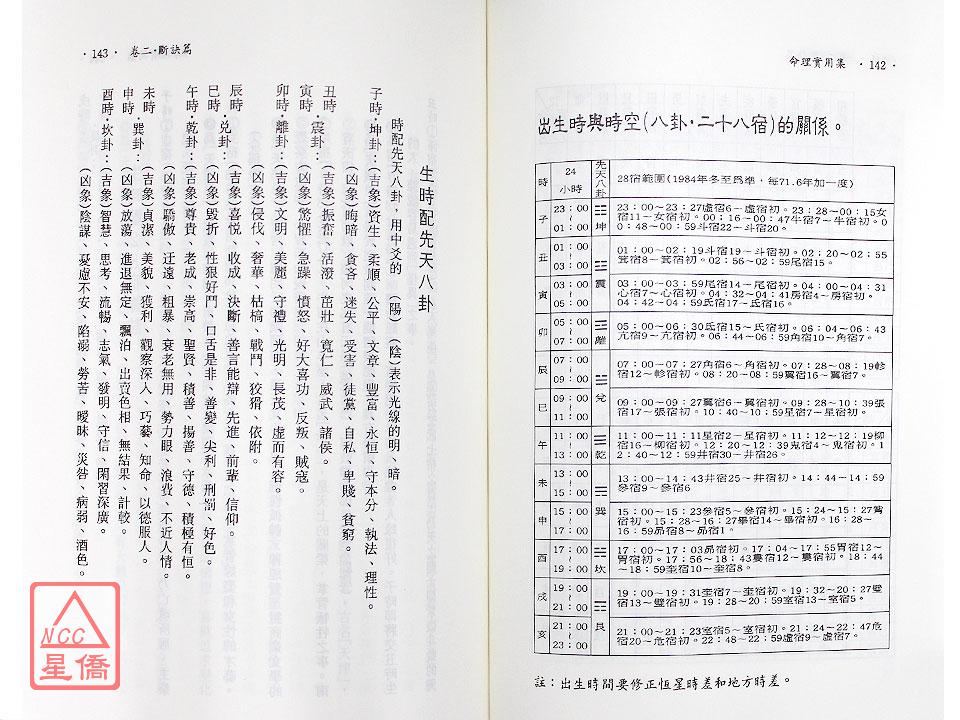 命理實用集 ‧142‧
出生時與時空(八卦‧二十八宿)的關係。
時 24小時 先天八卦 28宿範圍(1984年冬至爲準，每71.6年加一度)
子 23:00~01:00 ☷坤 23:00~23:27虛宿6~虛宿初。23:28~00:15女宿11~女宿初。00:16~00:47牛宿7~牛宿初。00:48~00:59斗宿22~斗宿20。
丑 01:00~03:00 ☳震 01:00~02:19斗宿19~斗宿初。02:20~02:55箕宿8~箕宿初。02:56~02:59尾宿15。
寅 03:00~05:00 03:00~03:59尾宿14~尾宿初。04:00~04:31心宿7~心宿初。04:32~04:41房宿4~房宿初。04:42~04:59氐宿17~氐宿16。
卯 05:00~07:00 ☲離 05:00~06:30氐宿15~氐宿初。06:04~06:43亢宿9~亢宿初。06:44~06:59角宿10~角宿7。
辰 07:00~09:00 ☱兌 07:00~07:27角宿6~角宿初。07:28~08:19軫宿12~軫宿初。08:20~08:59翼宿16~翼宿7。
巳 09:00~11:00 09:00~09:27翼宿6~翼宿初。09:28~10:39張宿17~張宿初。10:40~10:59星宿7~星宿初。
午 11:00~13:00 ☰乾 11:00~11:11星宿2~星宿初。11:12~12:19柳宿16~柳宿初。12:20~12:39鬼宿4~鬼宿初。12:40~12:59井宿30~井宿26。
未 13:00~15:00 ☴巽 13:00~14:43井宿25~井宿初。14:44~14:59參宿9~參宿6
申 15:00~17:00 15:00~15:23參宿5~參宿初。15:24~15:27觜宿初。15:28~16:27畢宿14~畢宿初。16:28~16:59昴宿8~昴宿1。
酉 17:00~19:00 ☵坎 17:00~17:03昴宿初。17:04~17:55胃宿12~胃宿初。17:56~18:43婁宿12~婁宿初。18:44~18:59奎宿10~奎宿8。
戌 19:00~21:00 ☶艮 19:00~19:31奎宿7~奎宿初。19:32~20:27壁宿13~壁宿初。19:28~20:59室宿13~室宿5。
亥 21:00~23:00 21:00~21:23室宿5~室宿初。21:24~22:47危宿20~危宿初。22:48~22:59虛宿9~虛宿7。
註：出生時間要修正恒星時差和地方時差。
‧143‧ 卷二‧斷訣篇
生時配先天八卦
時配先天八卦，用中爻的(陽)(陰)表示光線的明、暗。
子時‧坤卦：(吉象)資生、柔順、公平、文章、豐富、永恒、守本分、執法、理性。
(凶象)晦暗、貪吝、迷失、受害、徒黨、自私、卑賤、貧窮。
丑時、
寅時‧震卦：(吉象)振奮、活潑、茁壯、寬仁、威武、諸侯。
(凶象)驚懼、急躁、憤怒、好大喜功、反叛、賊寇。
卯時‧離卦：(吉象)文明、美麗、守禮、光明、長茂、虛而有容。
(凶象)侵伐、奢華、枯槁、戰鬥、狡猾、依附。
辰時、
巳時‧兌卦：(吉象)喜悅、收成、決斷、善言能辯、先進、前輩、信仰。
(凶象)毀折、性狠好鬥、口舌是非、善變、尖利、刑罰、好色。
午時‧乾卦：(吉象)尊貴、老成、崇高、聖賢、積善、揚善、守德、積極有恒。
(凶象)驕傲、迂遠、粗暴、衰老無用、勢力眼、浪費、不近人情。
未時、
申時‧巽卦：(吉象)貞潔、美貌、獲利、觀察深入、巧藝、知命、以德服人。
(凶象)放蕩、進退無定、飄泊、出賣色相、無結果、計較。
酉時‧坎卦：(吉象)智慧、思考、流暢、志氣、發明、守信、閑習深廣。
(凶象)陰謀、憂慮不安、陷溺、勞苦、曖昧、災咎、病弱、酒色。
NCC
星僑